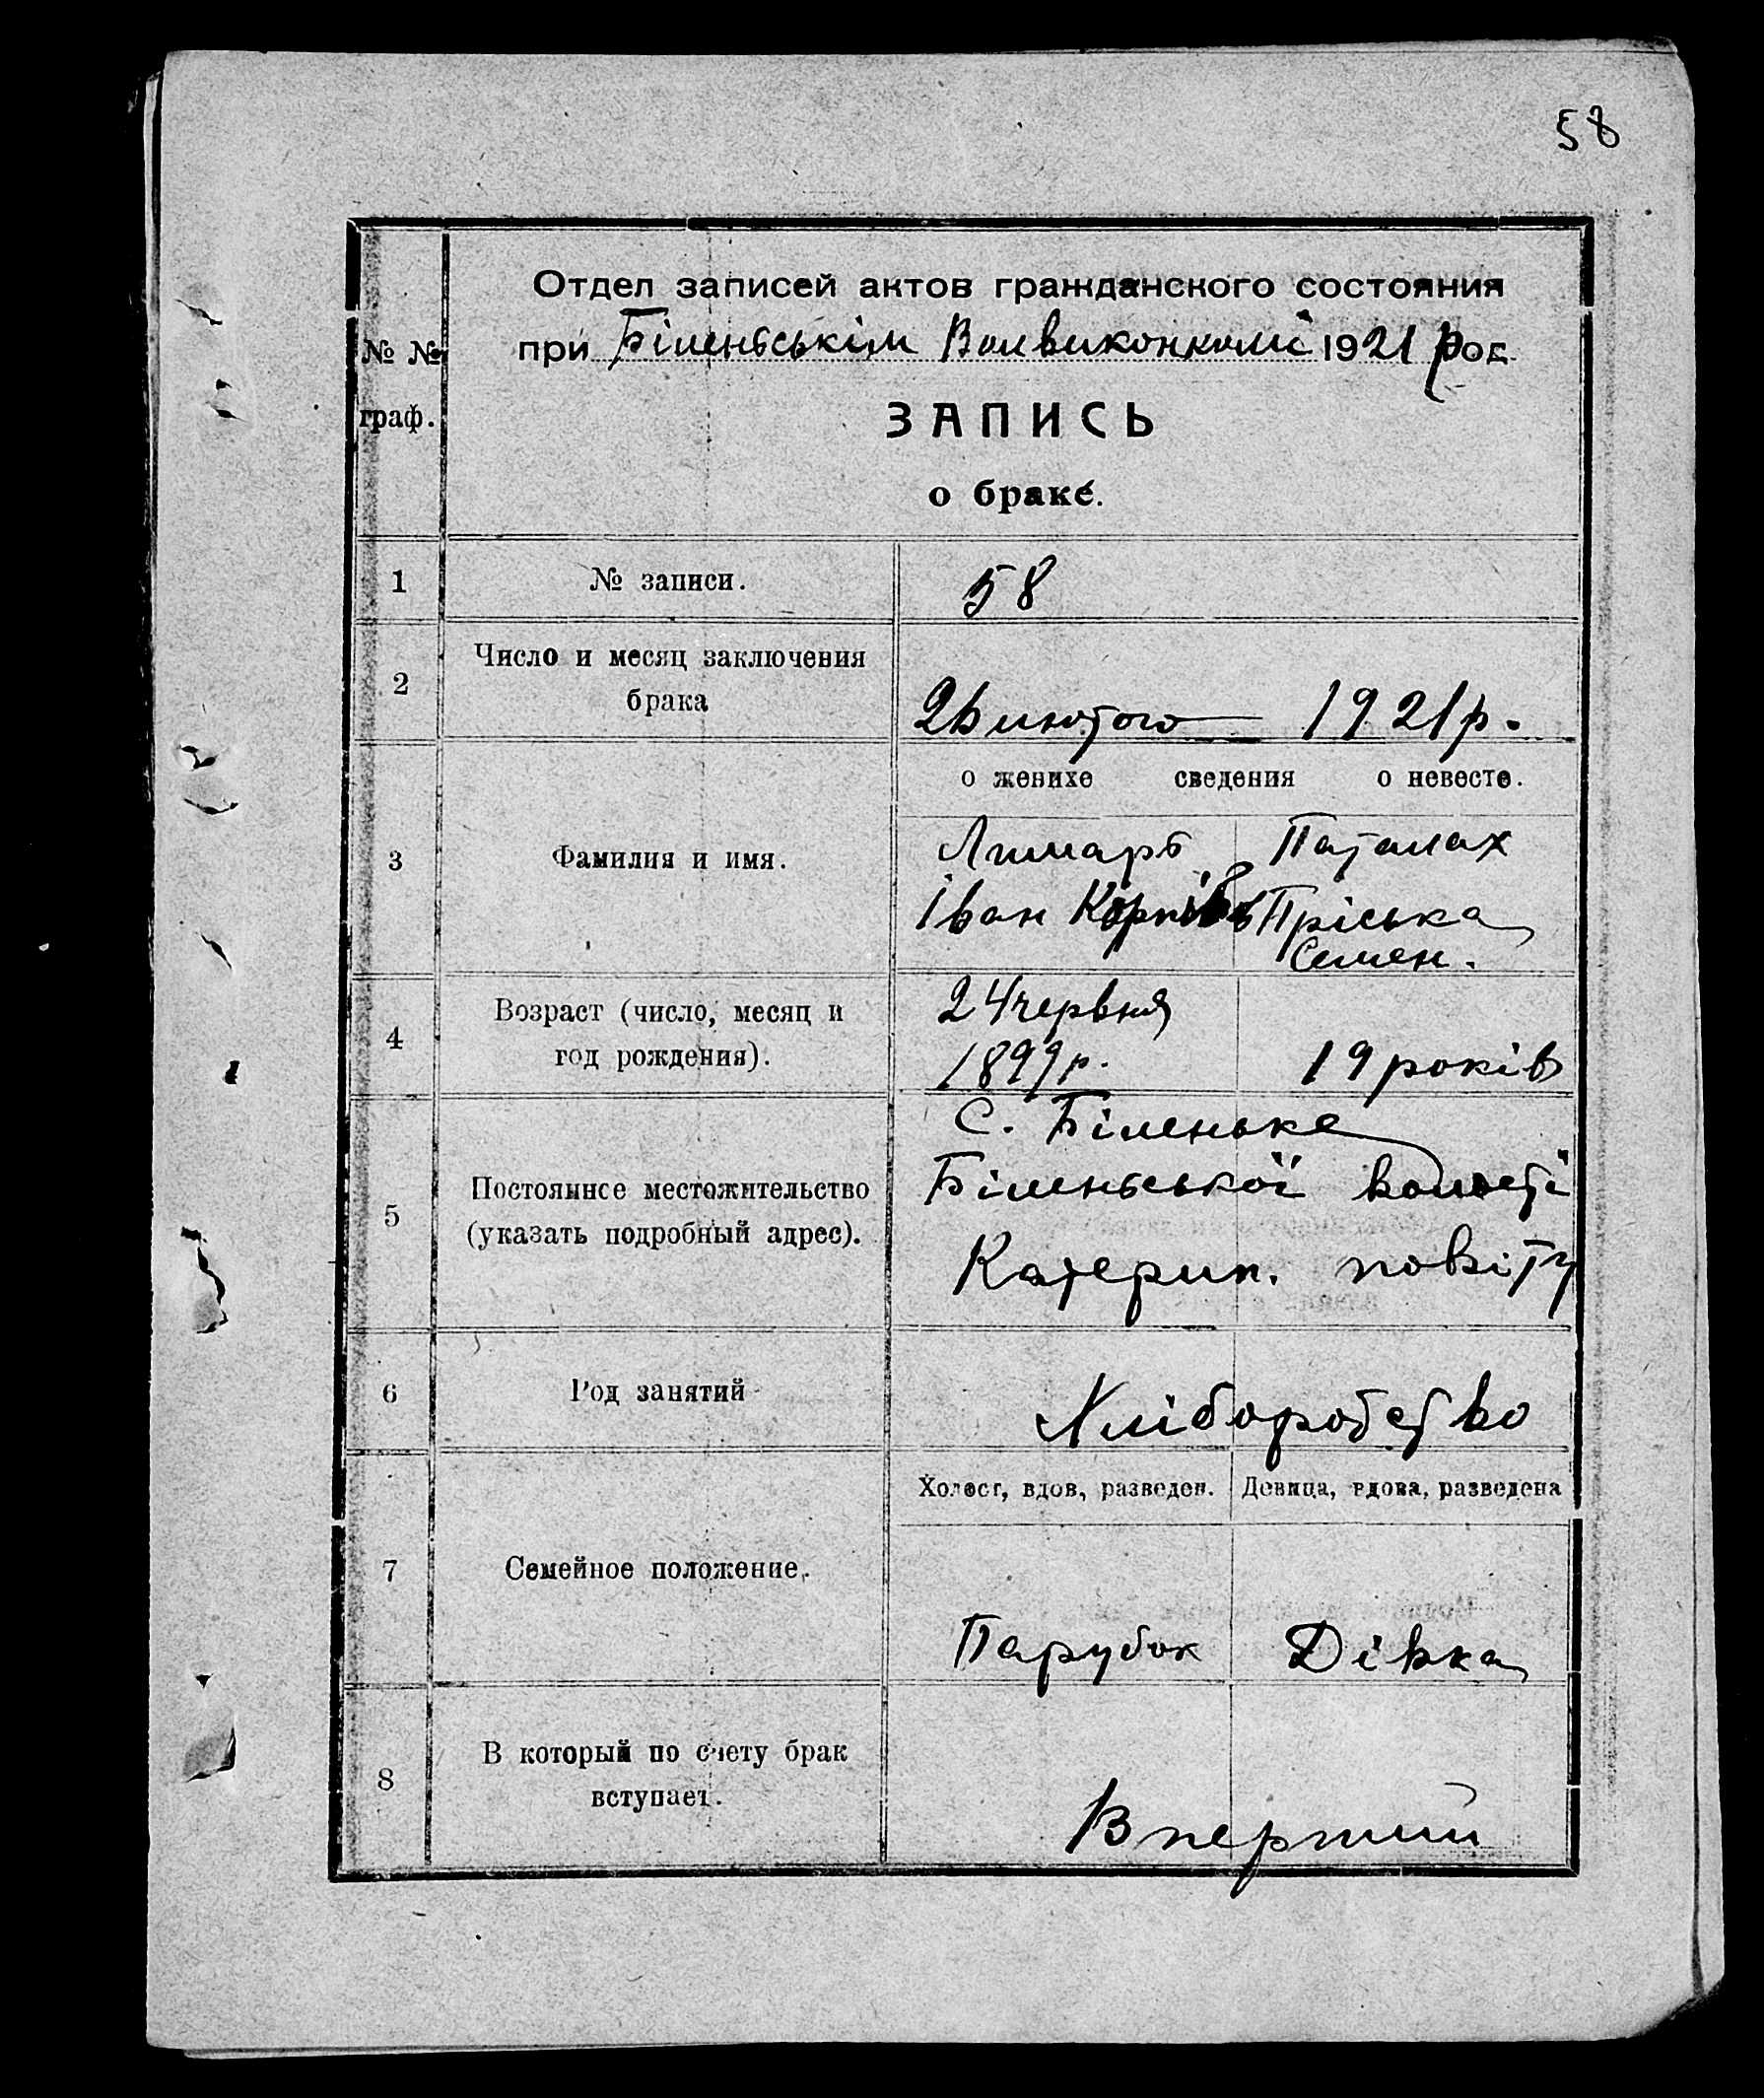 58
Отдел записей актов гражданского состояния
при Біленьськім Волвиконкомі 1921 год
№ №
граф.
ЗАПИСЬ
о браке.
1 № записи. 58
2 Число и месяц заключения
брака
лютого 1921 р.
о женихе сведения о невесте.
3 Фамилия и имя.
Лимарь Паталах
Іван Пріська
Семен.
4 Возраст (число, месяц и
год рождения).
24 червня
1899 р. 19 років
5 Постоянное местожительство
(указать подробный адрес).
С. Біленьке
Біленьської волості
Катерин. повіту
6 Род занятий Хліборобство
Холост, вдов, разведен. Девица, вдова, разведена
7 Семейное положение.
Парубок Дівка
8 В который по счету брак
вступает.
В перший